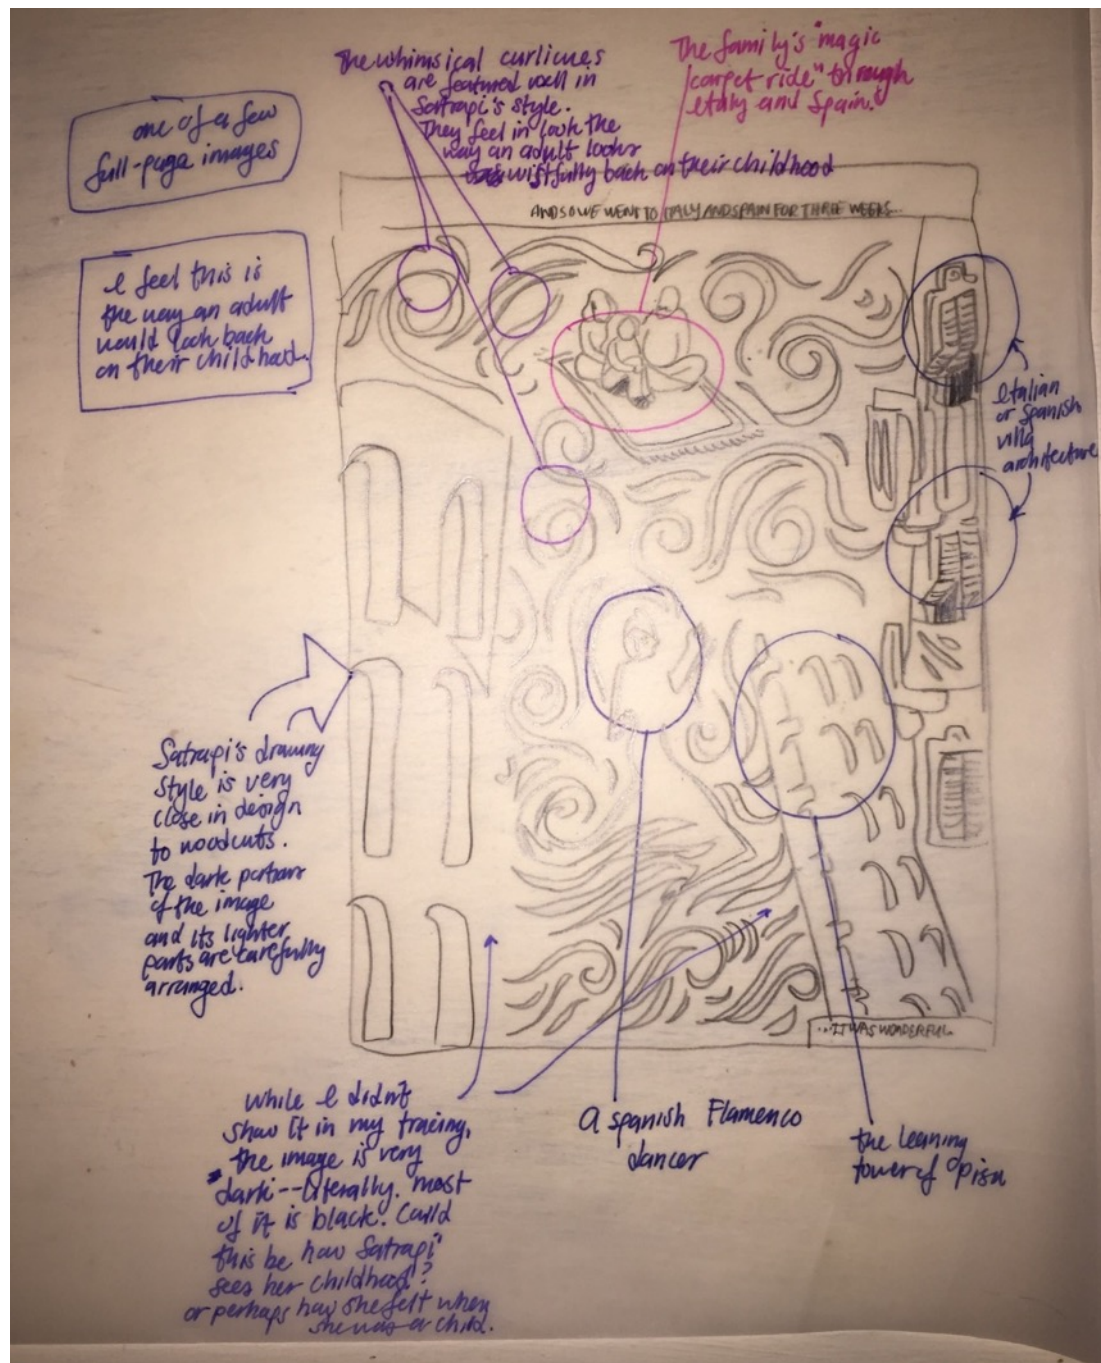 The whimsical curlicues
are featured well in
Satrapi's style.
They feel in look the
way an adult looks
wistfully back on their childhood
The family's "magic
carpet ride" through
Italy and Spain.
one of a few
full-page images
I feel this is
the way an adult
would look back
on their childhood.
AND SO WE WENT TO ITALY AND SPAIN FOR THREE WEEKS...
Italian
or Spanish
villa
architecture
Satrapi's drawing
style is very
close in design
to woodcuts.
The dark portions
of the image
and its lighter
parts are carefully
arranged.
...IT WAS WONDERFUL.
while I didn't
show it in my tracing,
the image is very
dark--literally. most
of it is black. Could
this be how Satrapi
sees her childhood?
or perhaps how she felt when
she was a child.
A spanish Flamenco
dancer
the leaning
tower of pisa